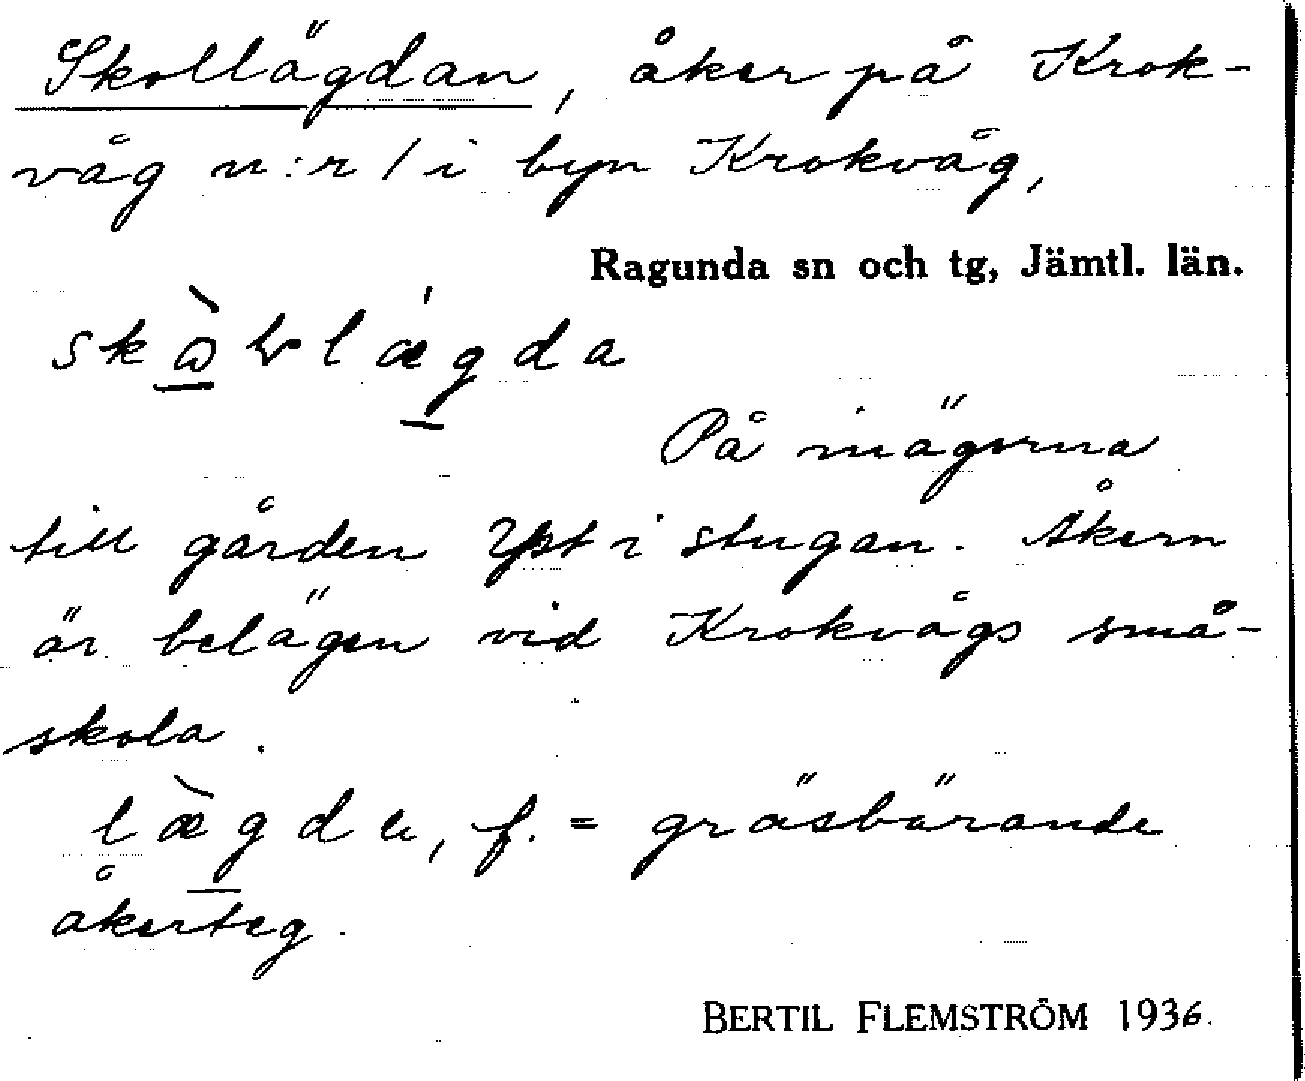 Skollägdan, åker på Krok-
våg n:r 1 i byn Krokvåg,
Ragunda sn och tg, Jämtl. län.
På inägorna
till gården Yst i stugan. Åkern
är belägen vid Krokvågs små-
skola.
f. = gräsbärande
åkerteg.
BERTIL FLEMSTRÖM 1936.